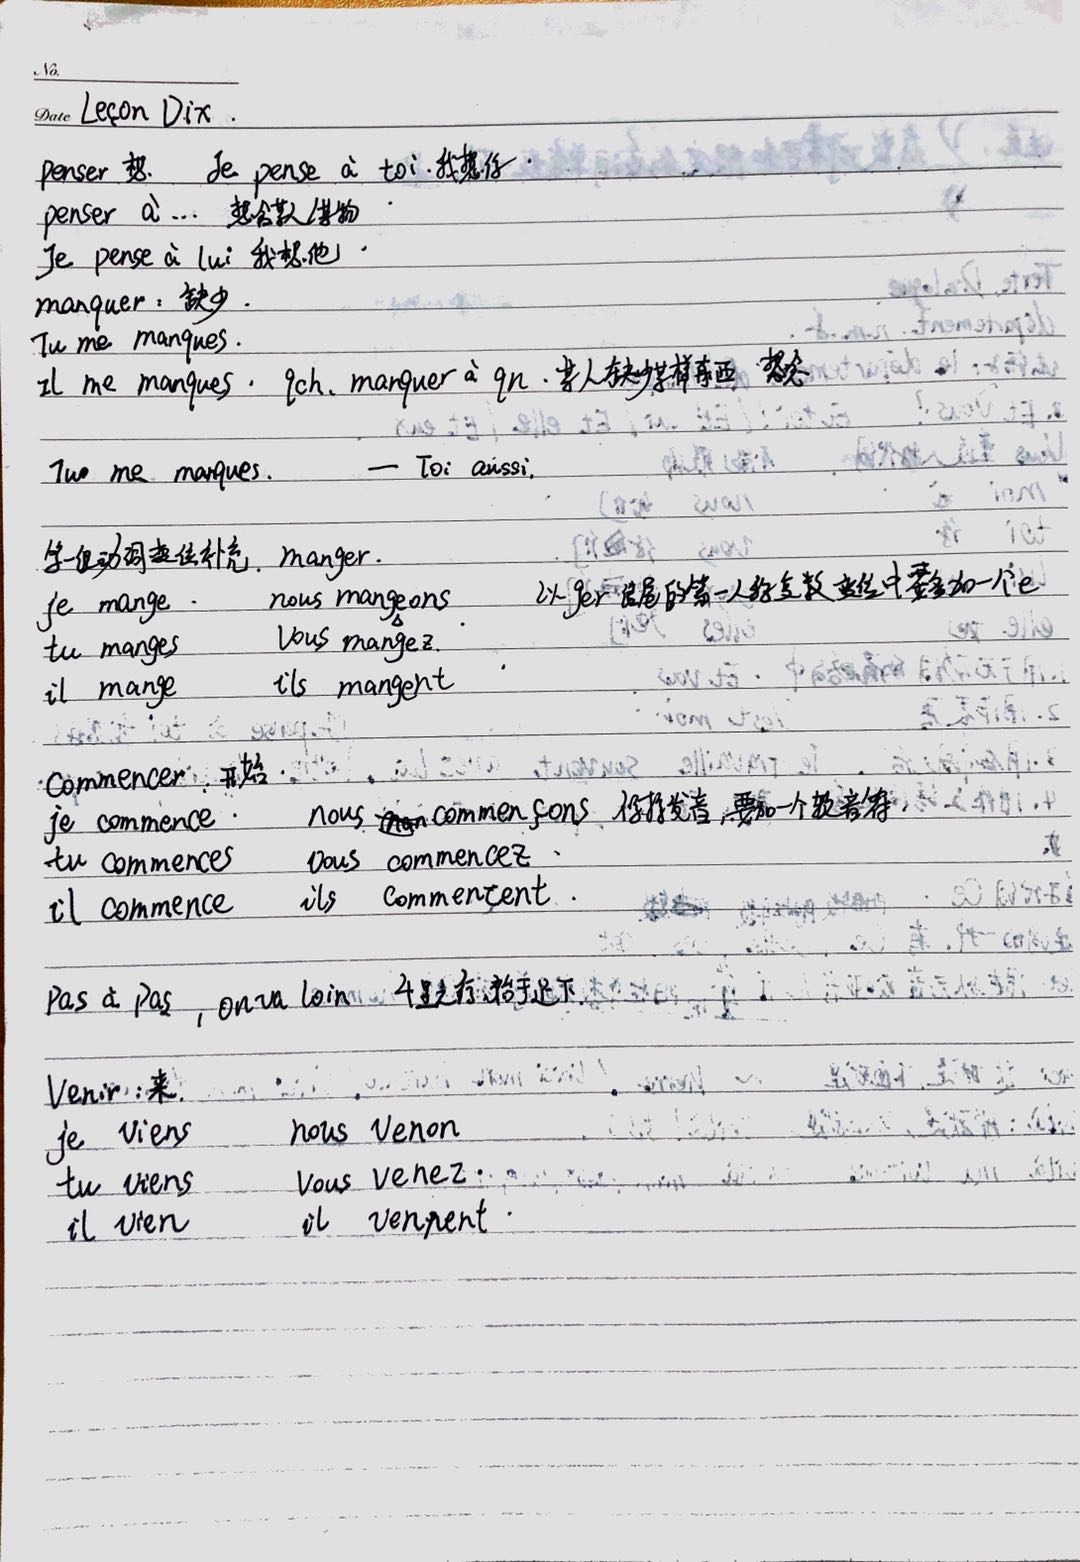 No.
Date Leçon Dix.
penser 想. Je pense à toi. 我想你.
penser à... 想念某人/某物
Je pense à lui 我想他.
manquer: 缺少.
Tu me manques.
Il me manques. qch. manquer à qn. 某人缺少某样东西 想念
Tu me manques. — Toi aussi.
第一组动词变位补充. manger.
je mange. nous mangeons 以ger结尾的第一人称复数变位中要加一个e
tu manges Vous mangez.
il mange ils mangent
Commencer: 开始.
je commence. nous commençons 保持发音,要加一个软音符.
tu commences vous commencez.
il commence ils commençent.
Pas à pas, on va loin 千里之行,始于足下
Venir: 来.
je viens nous venon
tu viens Vous venez.
il vien il vennent.